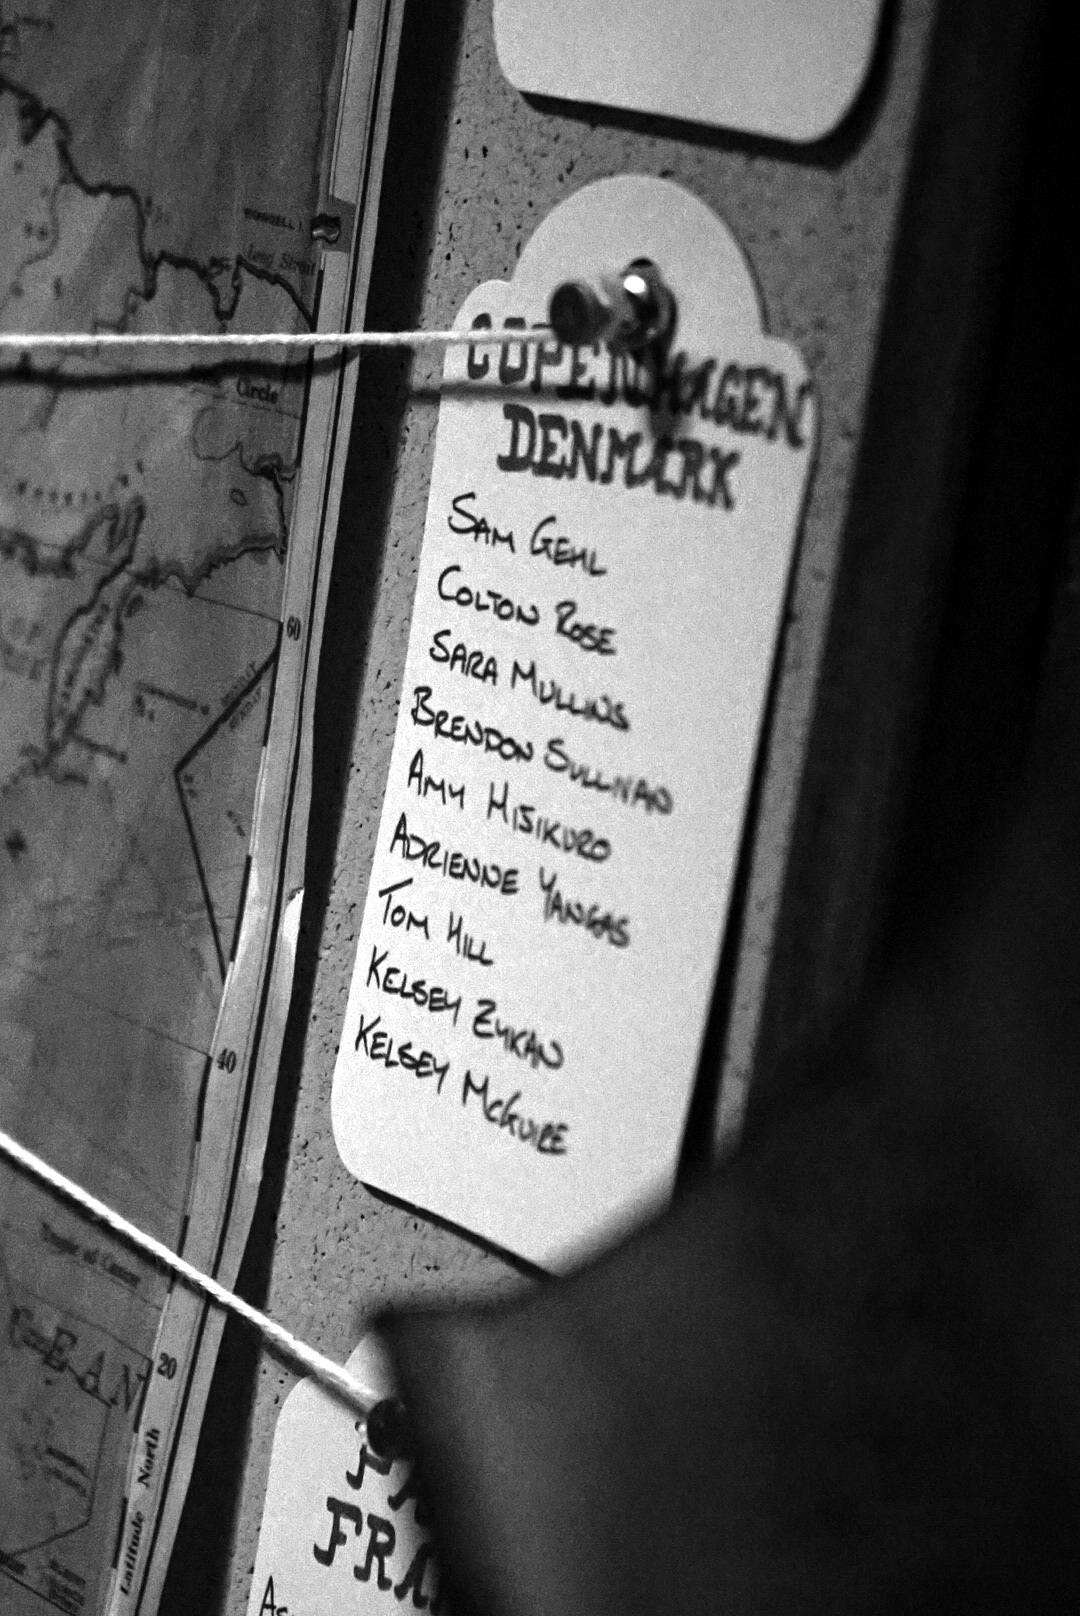 COPENHAGEN
DENMARK
SAM GEHL
COLTON ROSE
SARA MULLINS
BRENDON SULLIVAN
AMY HISIKURO
ADRIENNE YANGAS
TOM HILL
KELSEY ZYKAN
KELSEY MCGUIRE
FRA
Circle
60
40
20
Latitude North
Tropic of Cancer
EAN